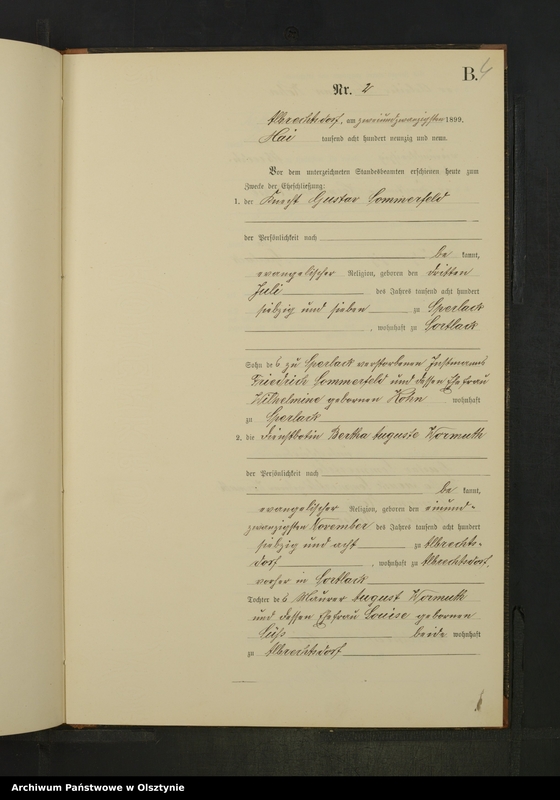 B. 4
Nr. 2
Albrechtsdorf, am zweiundzwanzigsten 1899.
Mai tausend acht hundert neunzig und neun.
Vor dem unterzeichneten Standesbeamten erschienen heute zum
Zwecke der Eheschließung:
1. der Knecht Gustav Sommerfeld
der Persönlichkeit nach
be kannt,
evangelischer Religion, geboren den dritten
Juli des Jahres tausend acht hundert
siebzig und sieben zu Sperlack
, wohnhaft zu Sortlack.
Sohn des zu Sperlack verstorbenen Instmanns
Friedrich Sommerfeld und dessen Ehefrau
Wilhelmine gebornen wohnhaft
zu Sperlack
2. die Dienstbotin Bertha Auguste Wormuth
der Persönlichkeit nach
be kannt,
evangelischer Religion, geboren den einund-
zwanzigsten November des Jahres tausend acht hundert
siebzig und acht zu Albrechts-
dorf , wohnhaft zu Albrechtsdorf,
vorher in Sortlack
Tochter des Maurer August Wormuth
und dessen Ehefrau Louise gebornen
Süß beide wohnhaft
zu Albrechtsdorf
Archiwum Państwowe w Olsztynie